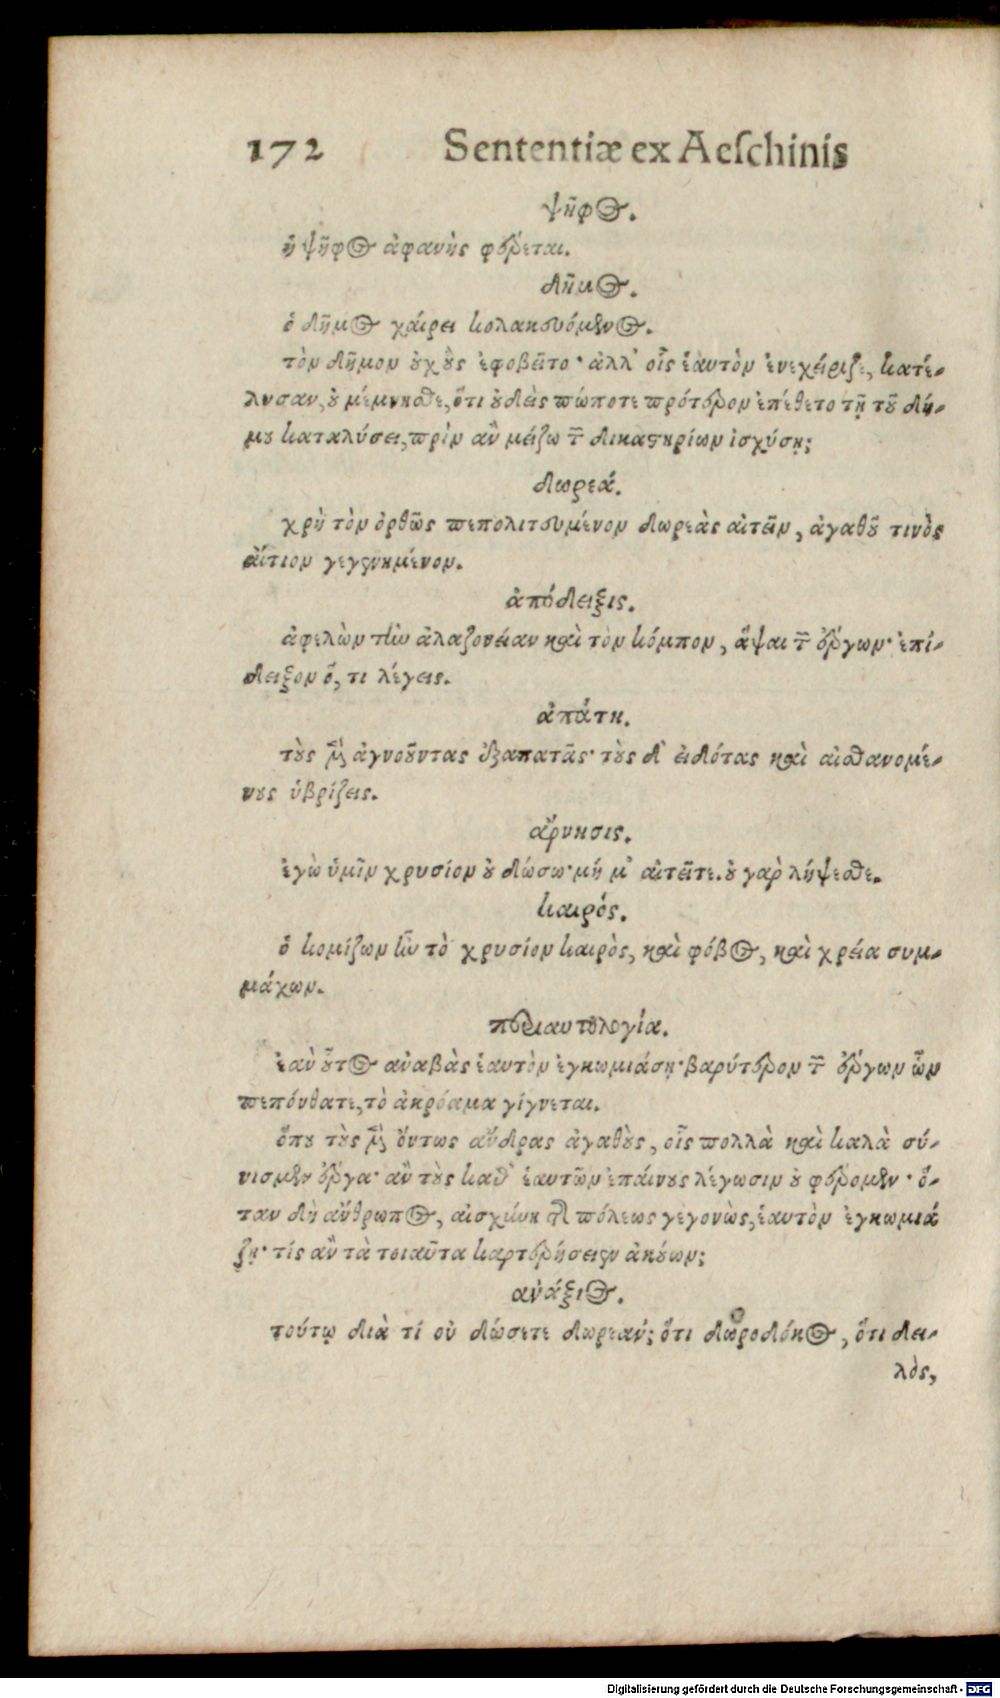 172 Sententiæ ex Aeſchinis
ψῆφος.
ἡ ψῆφος ἀφανὴς φέρεται.
δῆμος.
ὁ δῆμος χαίρει κολακευόμενος.
τὸν δῆμον οὐχ οὓς ἐφοβεῖτο· ἀλλ' οἷς ἑαυτὸν ἐνεχείριζε, κατέ-
λυσαν, οὐ μέμνησθε, ὅτι οὐδεὶς πώποτε πρότερον ἐπέθετο τῇ τοῦ δή-
μου καταλύσει, πρὶν ἂν μείζω τῶν δικαστηρίων ἰσχύσῃ;
δωρεά.
χρὴ τὸν ὀρθῶς πεπολιτευμένον δωρεὰς αἰτεῖν, ἀγαθοῦ τινὸς
αἴτιον γεγενημένον.
ἀπόδειξις.
ἀφελὼν τὴν ἀλαζονείαν καὶ τὸν κόμπον, ἅψαι τῶν ἔργων· ἐπί-
δειξον ὅ, τι λέγεις.
ἀπάτη.
τοὺς μὲν ἀγνοοῦντας ἐξαπατᾷς· τοὺς δ' εἰδότας καὶ αἰσθανομέ-
νους ὑβρίζεις.
ἄρνησις.
ἐγὼ ὑμῖν χρυσίον οὐ δώσω· μή μ' αἰτεῖτε. οὐ γὰρ λήψεσθε.
καιρός.
ὁ κομίζων ἦν τὸ χρυσίον καιρὸς, καὶ φόβος, καὶ χρεία συμ-
μάχων.
περιαυτολογία.
ἐὰν οὗτος ἀναβὰς ἑαυτὸν ἐγκωμιάσῃ· βαρύτερον τῶν ἔργων ὧν
πεπόνθατε, τὸ ἀκρόαμα γίγνεται.
ὅπου τοὺς μὲν ὄντως ἄνδρας ἀγαθοὺς, οἷς πολλὰ καὶ καλὰ σύ-
νισμεν ἔργα· ἂν τοὺς καθ' ἑαυτῶν ἐπαίνους λέγωσιν οὐ φέρομεν· ὅ-
ταν δὴ ἄνθρωπος, αἰσχύνη τῆς πόλεως γεγονὼς, ἑαυτὸν ἐγκωμιά
ζῃ· τίς ἂν τὰ τοιαῦτα καρτερήσειεν ἀκούων;
ἀνάξιος.
τούτῳ διὰ τί οὐ δώσετε δωρεάν; ὅτι δωροδόκος, ὅτι δει-
λὸς,
Digitalisierung gefördert durch die Deutsche Forschungsgemeinschaft - DFG